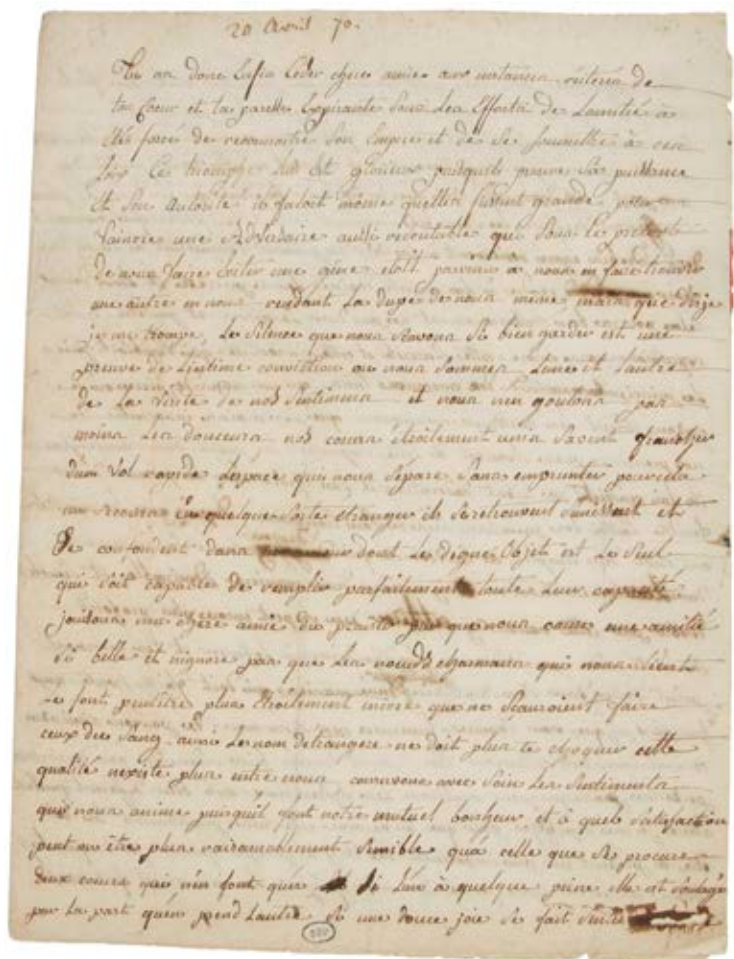 20 Avril 70.
Tu as donc Enfin Ceder chere amie aux instances réiterés de
ton Coeur et ta paresse Expirante Sous Les Efforts de Lamitié à
été forcé de reconnoitre Son Empire et de Se soumettre à ses
Loix Ce triomphe est glorieux puisquils prouve Sa puissance
et Son Autorité il faloit même quelles fussent grande pour
Vaincre une Adversaire aussi redoutable qui Sous Le pretexte
de nous faire Eviter une gêne étoit parvenu à nous en faire trouver
une autre en nous rendant La dupe de nous même mais que disje
je me trompe, Le Silence que nous Savons Si bien garder est une
preuve de Lintime conviction ou nous Sommes Lune et Lautre
de La Verité de nos Sentimens et nous nen goutons pas
moins Les douceurs nos coeurs étroitement unis Savent franchir
dun Vol rapide Lespace qui nous Sépare Sans emprunter pour cela
un Secours En quelque Sorte étranger ils Se retrouvent Sunissent et
Se confondent dans dont Le digne Objet est Le Seul
qui Soit capable de remplir parfaitement toute Leur capacité
jouissons ma chere amie du plaisir pur que nous cause une amitié
Si belle et nignore pas que Les noeuds charmans qui nous Lient
Le font peutêtre plus Etroitement encore que ne Scauroient faire
ceux du Sang ainsi Le nom detrangere ne doit plus te choquer cette
qualité nexiste plus entre nous conservons avec Soin Les Sentimens
qui nous anime puisquil font notre mutuel bonheur et à quel Satisfaction
peut on être plus raisonnablement Sensible qua celle que Se procure
deux coeurs qui nen font quun Si Lun à quelque peine elle est Soulagé
par La part quen prend Lautre Si une douce joie Se fait Sentir